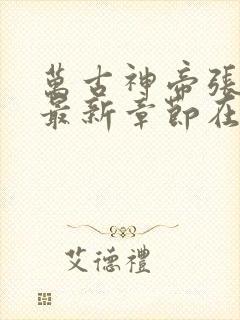 萬古神帝張
最新章節在
艾德禮